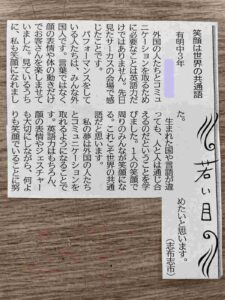 笑顔は世界の共通語
有明中3年
外国の人たちとコミュ
ニケーションを取るため
に必要なことは英語力だ
けではありません。先日
見たサーカスの会場で感
じたことです。
パフォーマンスをして
いる人たちは、みんな外
国人です。言葉ではなく
顔の表情や体の動きだけ
でお客さんを楽しませて
いました。見ているうち
に、私も笑顔になれまし
た。
生まれた国や言語が違
っても、人と人は通じ合
えるのだということを学
びました。1人の笑顔で
周りのみんなが笑顔にな
る。これこそ世界の共通
語だと思います。
私の夢は外国の人たち
とコミュニケーションを
取れるようになることで
す。英語力はもちろん、
顔の表情やジェスチャー
も大切にしながら、何よ
りも笑顔でいることに努
めたいと思います。
(志布志市)
若い目